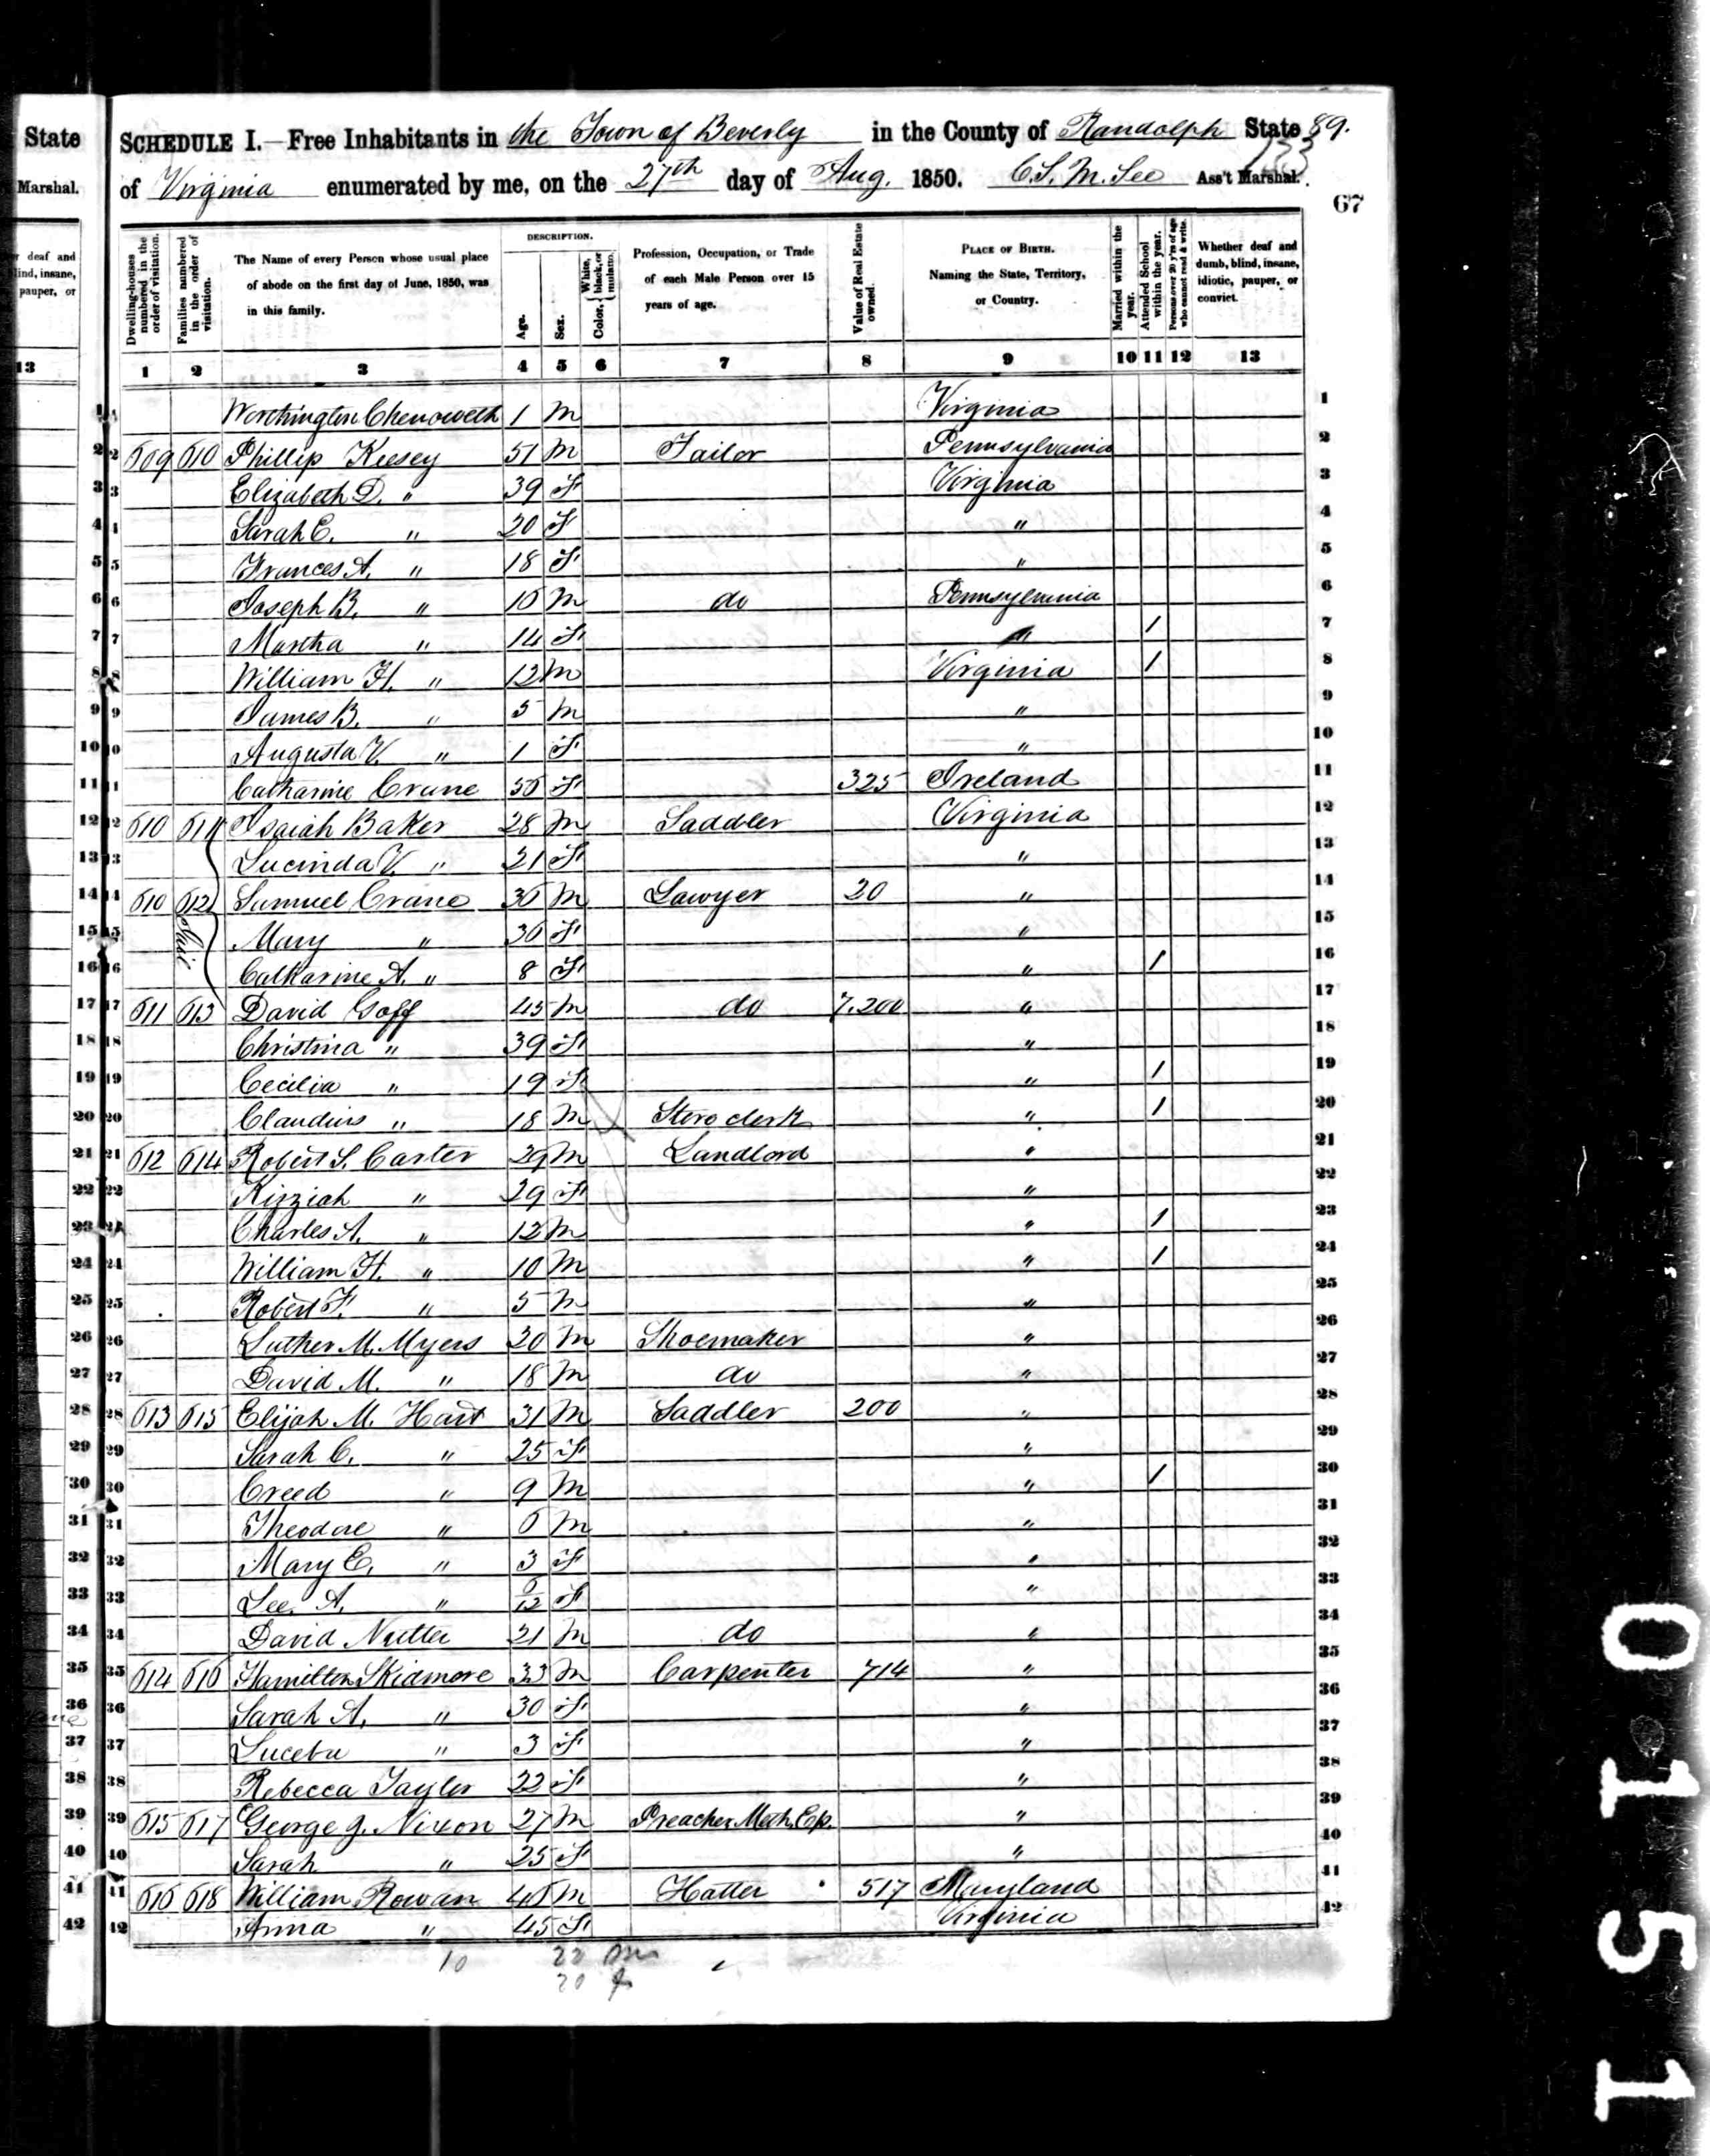 State
Marshal.
r deaf and
lind, insane,
pauper, or
13
SCHEDULE I.—Free Inhabitants in the Town of Beverly in the County of Randolph State 89.
of Virginia enumerated by me, on the 27th day of Aug. 1850. Ass't Marshal.
67
Dwelling-houses numbered in the order of visitation.
Families numbered in the order of visitation.
The Name of every Person whose usual place of abode on the first day of June, 1850, was in this family.
DESCRIPTION.
Age.
Sex.
Color, White, black, or mulatto.
Profession, Occupation, or Trade of each Male Person over 15 years of age.
Value of Real Estate owned.
PLACE OF BIRTH. Naming the State, Territory, or Country.
Married within the year.
Attended School within the year.
Persons over 20 y'rs of age who cannot read & write.
Whether deaf and dumb, blind, insane, idiotic, pauper, or convict.
1 2 3 4 5 6 7 8 9 10 11 12 13
1 Worthington Chenoweth 1 M Virginia 1
2 609 610 Phillip Keesey 51 M Tailor Pennsylvania 2
3 Elizabeth D. " 39 F Virginia 3
4 Sarah E. " 20 F " 4
5 Frances A. " 18 F " 5
6 Joseph B. " 16 M do Pennsylvania 6
7 Martha " 14 F " / 7
8 William H. " 12 M Virginia / 8
9 James B. " 5 M " 9
10 Augusta V. " 1 F " 10
11 Catharine Crane 56 F 325 Ireland 11
12 610 611 Isaiah Baker 28 M Saddler Virginia 12
13 Lucinda V. " 21 F " 13
14 610 612 Samuel Crane 36 M Lawyer 20 " 14
15 Mary " 36 F " 15
16 Catharine A. " 8 F " / 16
17 611 613 David Goff 45 M do 7.200 " 17
18 Christina " 39 F " 18
19 Cecilia " 19 F " / 19
20 Claudius " 18 M Store clerk " / 20
21 612 614 Robert S. Carter 29 M Landlord " 21
22 Kizziah " 29 F " 22
23 Charles A. " 12 M " / 23
24 William H. " 10 M " / 24
25 Robert F. " 5 M " 25
26 Luther M. Myers 20 M Shoemaker " 26
27 David M. " 18 M do " 27
28 613 615 Elijah M. Hart 31 M Saddler 200 " 28
29 Sarah C. " 25 F " 29
30 Creed " 9 M " / 30
31 Theodore " 6 M " 31
32 Mary E. " 3 F " 32
33 Lee A. " F " 33
34 David Nutter 21 M do " 34
35 614 616 Hamilton Skidmore 33 M Carpenter 714 " 35
36 Sarah A. " 30 F " 36
37 " 3 F " 37
38 Rebecca Taylor 22 F " 38
39 615 617 George J. Nixon 27 M Preacher Meth. Ep. " 39
40 Sarah " 25 F " 40
41 616 618 William Rowan 46 M Hatter 517 Maryland 41
42 Anna " 45 F Virginia 42
10 22 m
20 f
0151